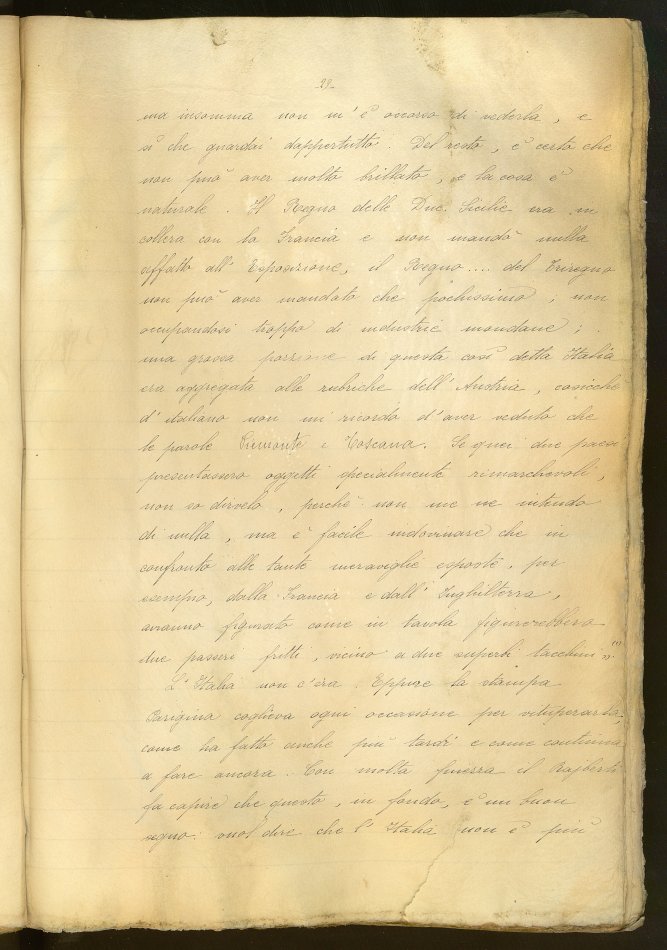 29.
ma insomma non m'è occorso di vederla, e
sì che guardai dappertutto. Del resto, è certo che
non può aver molto brillato, e la cosa è
naturale. Il Regno delle Due Sicilie era in
collera con la Francia e non mandò nulla
affatto all'Esposizione, il Regno .... del Triregno
non può aver mandato che pochissimo; non
occupandosi troppo di industrie mondane;
una grossa porzione di questa così detta Italia
era aggregata alle rubriche dell'Austria, cosicchè
d'italiano non mi ricordo d'aver veduto che
le parole Piemonte e Toscana. Se quei due paesi
presentassero oggetti specialmente rimarchevoli,
non so dirvelo, perchè non me ne intendo
di nulla, ma è facile indovinare che in
confronto alle tante meraviglie esposte, per
esempio, dalla Francia e dall'Inghilterra,
avranno figurato come in tavola figurerebbero
due passeri fritti, vicino a due superbi tacchini" (1)
L'Italia non c'era. Eppure la stampa
Parigina coglieva ogni occasione per vituperarla,
come ha fatto anche più tardi e come continua
a fare ancora. Con molta finezza il Rajberti
fa capire che questo, in fondo, è un buon
segno: vuol dire che l'Italia non è più